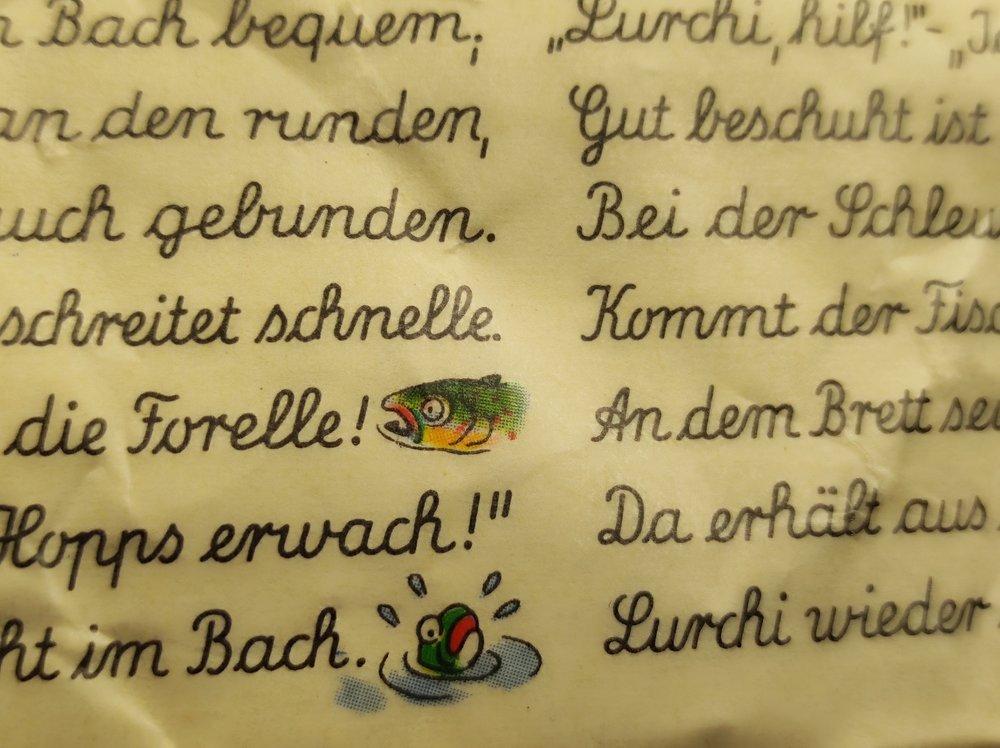 Bach bequem;
an den runden,
gebunden.
schreitet schnelle.
die Forelle!
Hopps erwach!"
im Bach.
„Lurchi, hilf!"-„
Gut beschuht ist
Bei der
Kommt der
An dem Brett
Da erhält aus
Lurchi wieder